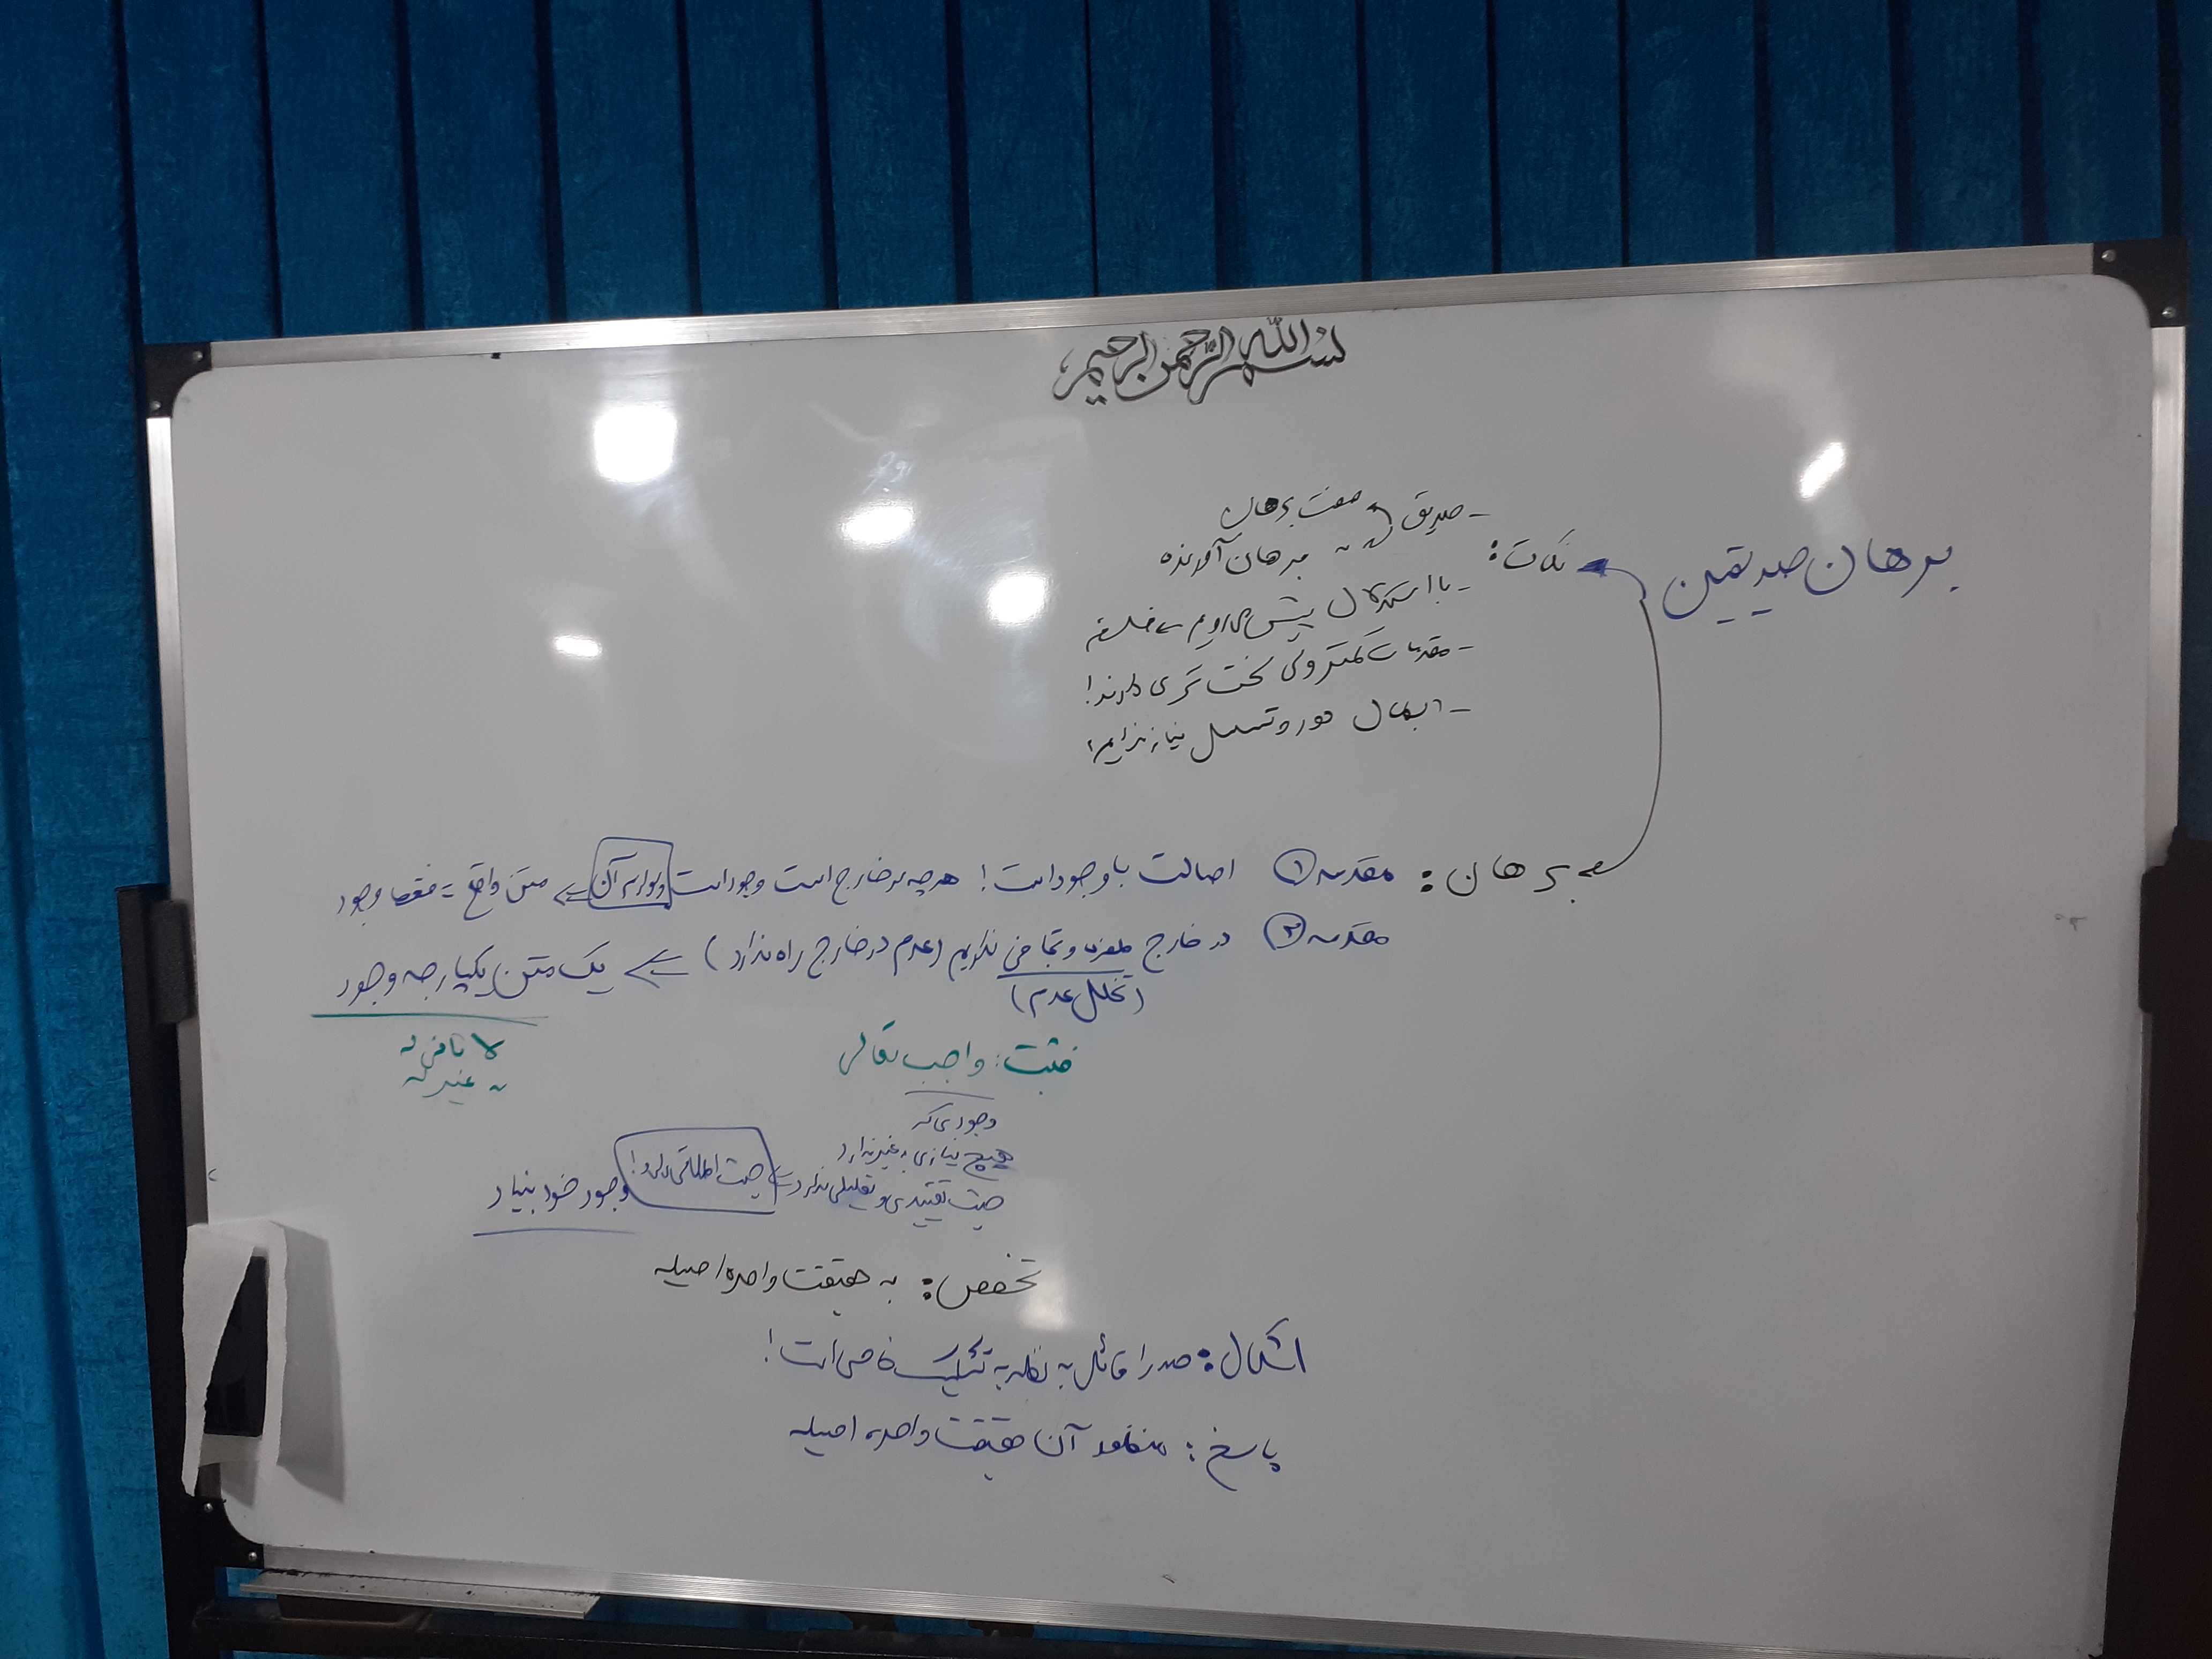 بسم الله الرحمن الرحیم
برهان صدیقین
نکات:
- صدیق صفت برهان
" برهان آورنده
- با استدلال پیش می‌رویم ← فلسفه
- مقدمات کمتر ولی سخت تری دارند!
- ابطال دور و تسلسل نیاز نداریم!
برهان: مقدمه ① اصالت با وجود است! هرچه در خارج است وجود است و لوازم آن ⇐ متن واقع = فقط وجود
مقدمه ② در خارج طفره و تجافی نداریم (عدم در خارج راه ندارد) ⇐ یک متن یکپارچه وجود
(تخلل عدم)
لا ثانی له
" غیر له
فثبت: واجب تعالی
وجودی که
هیچ نیازی به غیر ندارد
حیث تقییدی و تعلیلی ندارد ⇐ حیث اطلاقی دارد! وجود خود بنیاد
تخصص: به حقیقت واحده اصیله
اشکال: صدرا قائل به نظریه تشکیک خاصی است!
پاسخ: منظور آن حقیقت واحده اصیله